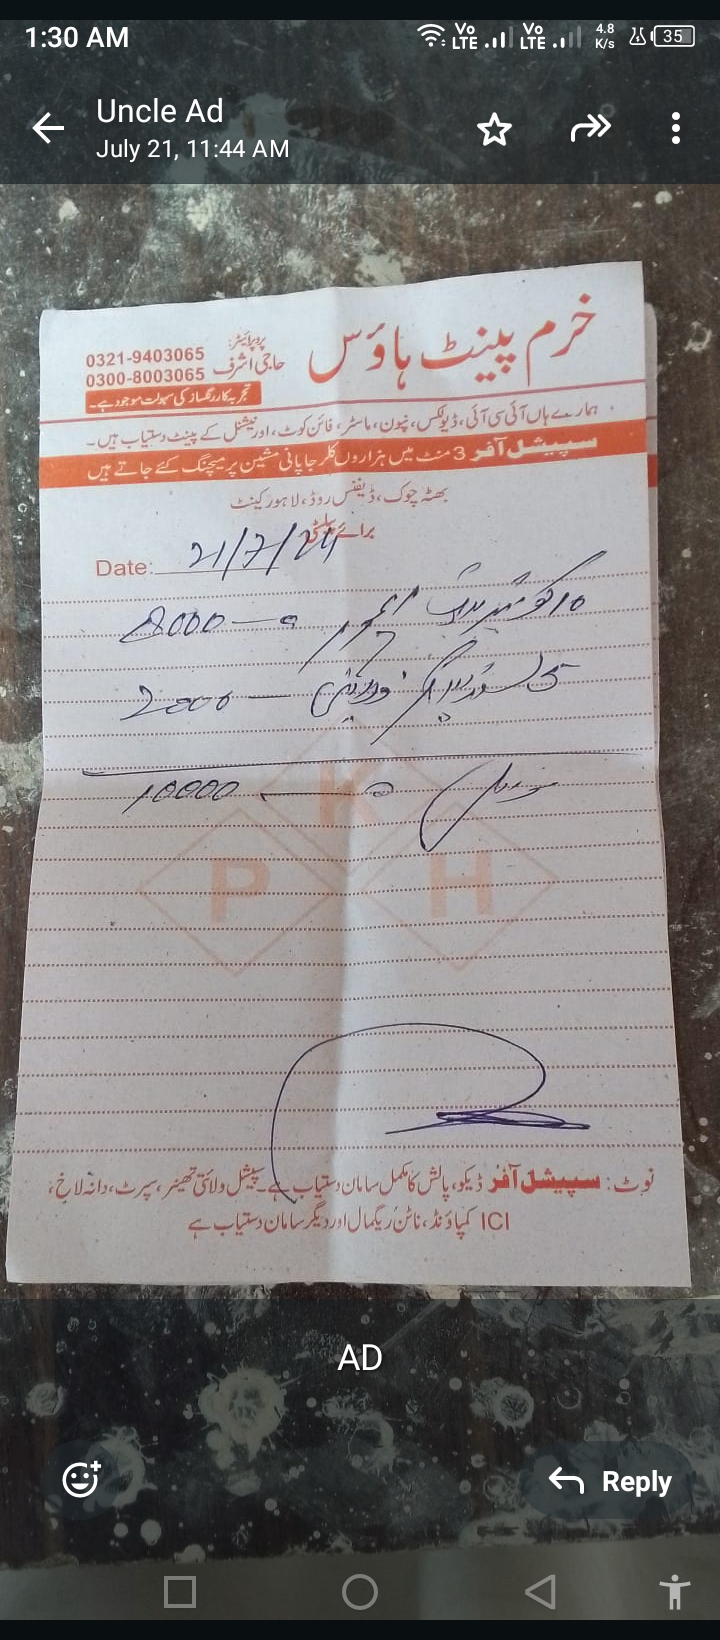 1:30 AM
Vo LTE Vo LTE 4.8 K/s 35
Uncle Ad
July 21, 11:44 AM
خرم پینٹ ہاؤس
پروپرائیٹر:
حاجی اشرف
0321-9403065
0300-8003065
تجربہ کار رنگساز کی سہولت موجود ہے۔
ہمارے ہاں آئی سی آئی، ڈیولکس، نپون، ماسٹر، فائن کوٹ، اور نیشنل کے پینٹ دستیاب ہیں۔
سپیشل آفر 3 منٹ میں ہزاروں کلر جاپانی مشین پر میچنگ کئے جاتے ہیں
بھٹہ چوک، ڈیفنس روڈ، لاہور کینٹ
برائے پبلٹی
Date: 21/7/24
10 8000
2000
10000
K
P H
نوٹ: سپیشل آفر ڈیکو، پالش کا مکمل سامان دستیاب ہے۔ سپیشل ولائتی تھینر، سپرٹ، دانہ لاخ،
ICI کمپاؤنڈ، ناٹن ریگمال اور دیگر سامان دستیاب ہے
AD
Reply